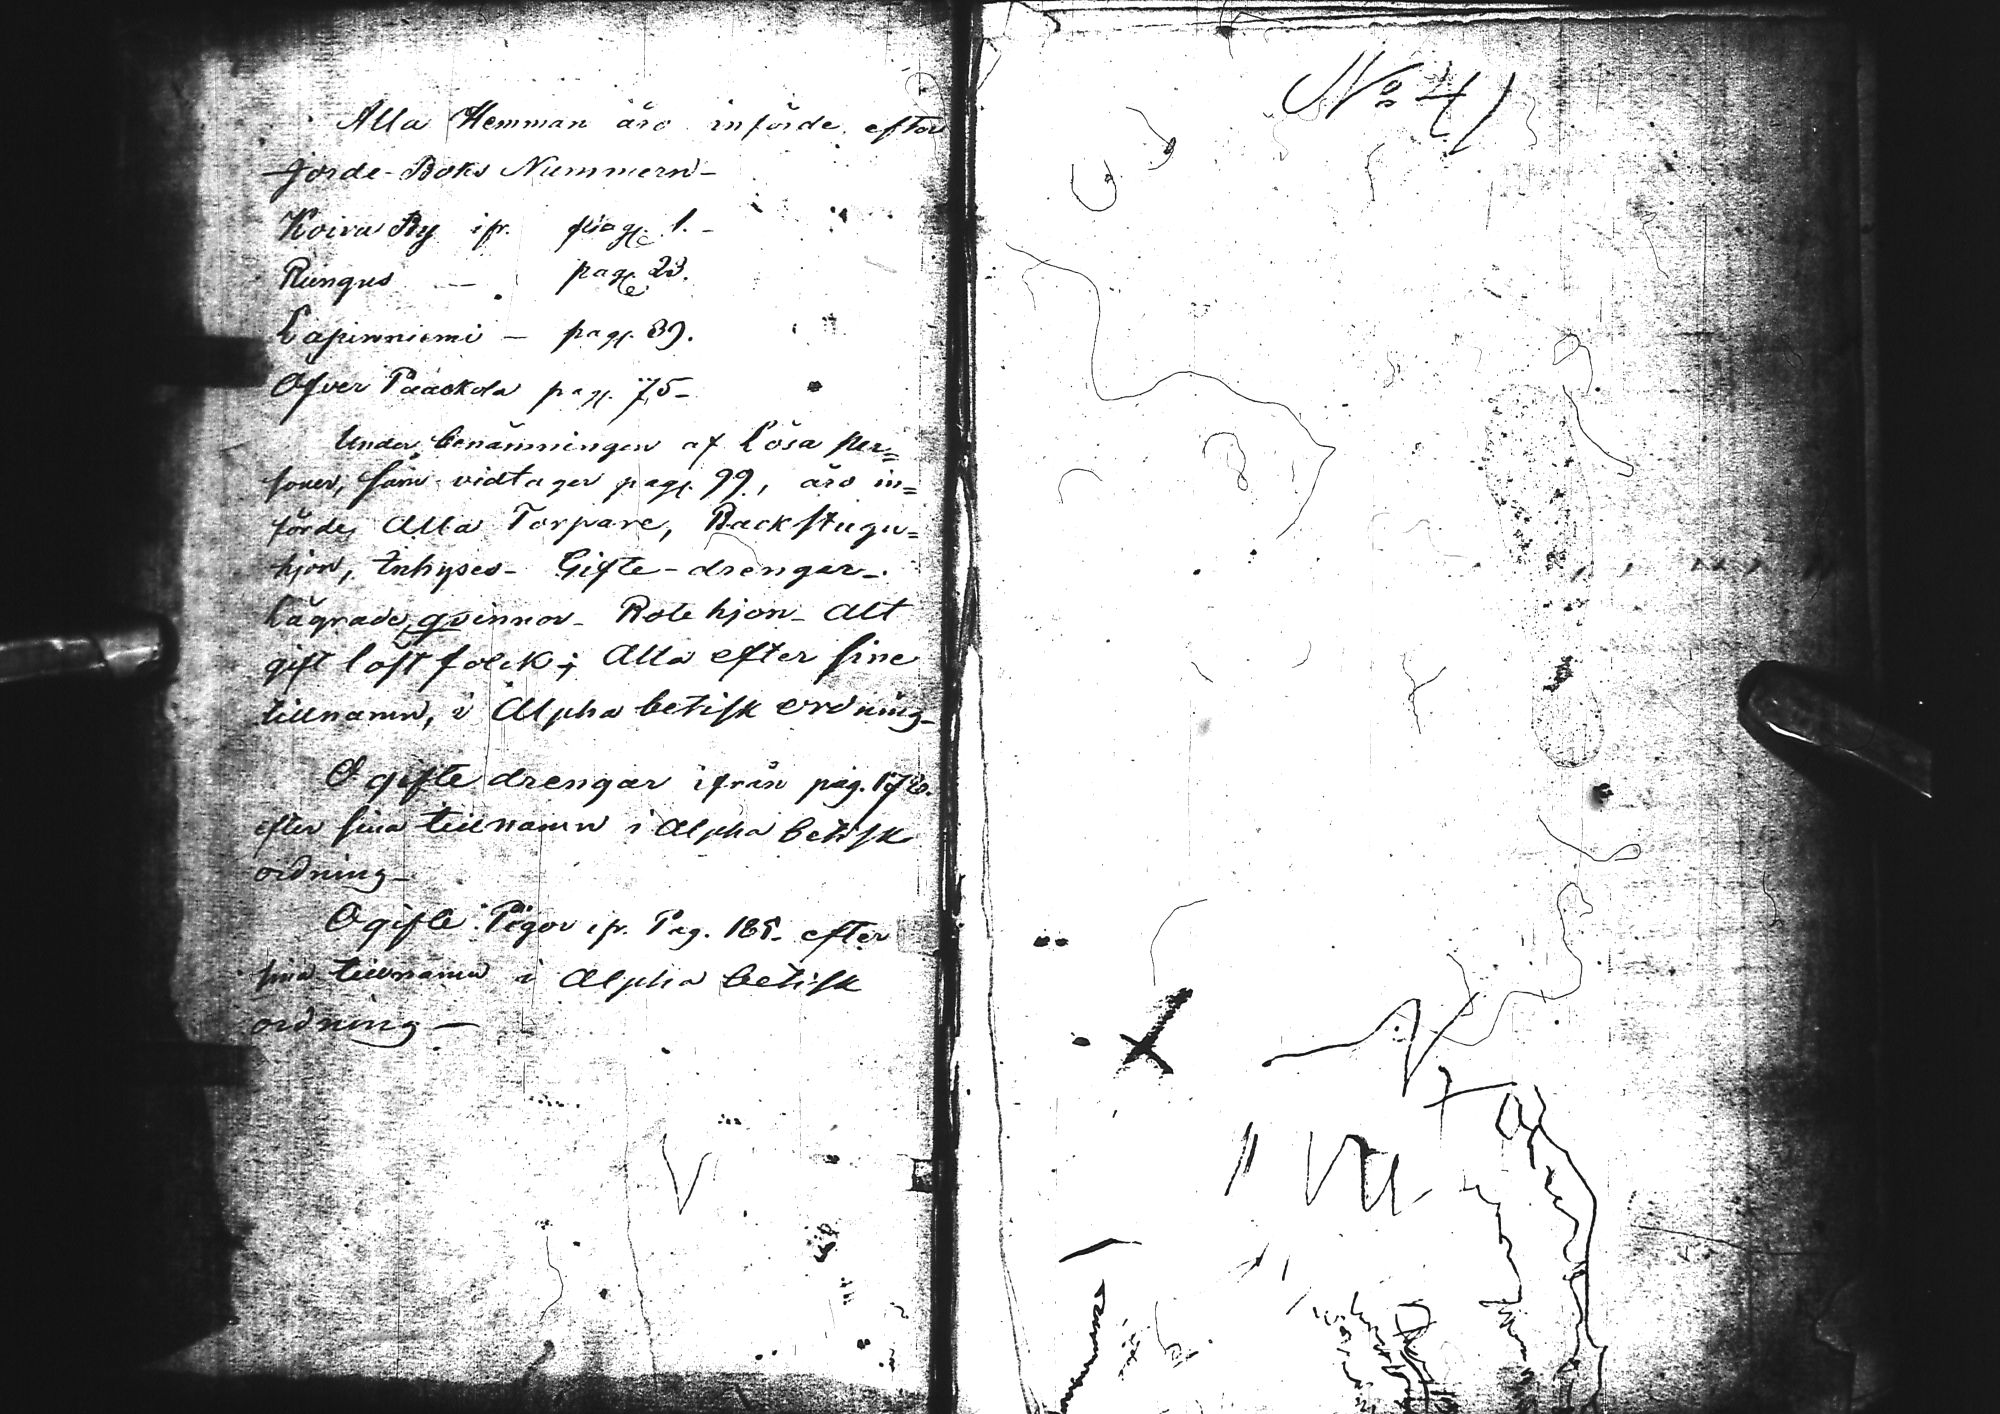 Alla Hemman äro införde efter
Jorde-Boks Nummern-
Koivu By ifr. pag. 1.-
Rungus — pag. 23.
Lapinniemi — pag. 39.
Ofver Paackola pag. 75-
Under benämningen af Lösa Per=
soner, som vidtager pag. 99, äro in=
förde, Alla Torpare, Backstugu=
hjon, Inhyses- Gifte-drengar-
Lägrade qvinnor- Rotehjon- Alt
gift löst folck; Alla efter sine
tillnamn, i Alphabetisk ordning-
Ogifte drengar ifrån pag.
efter sina tillnamn i Alphabetisk
ordning-
Ogifte Pigor ifr. Pag. efter
sina tillnamn i Alphabetisk
ordning—
No 4